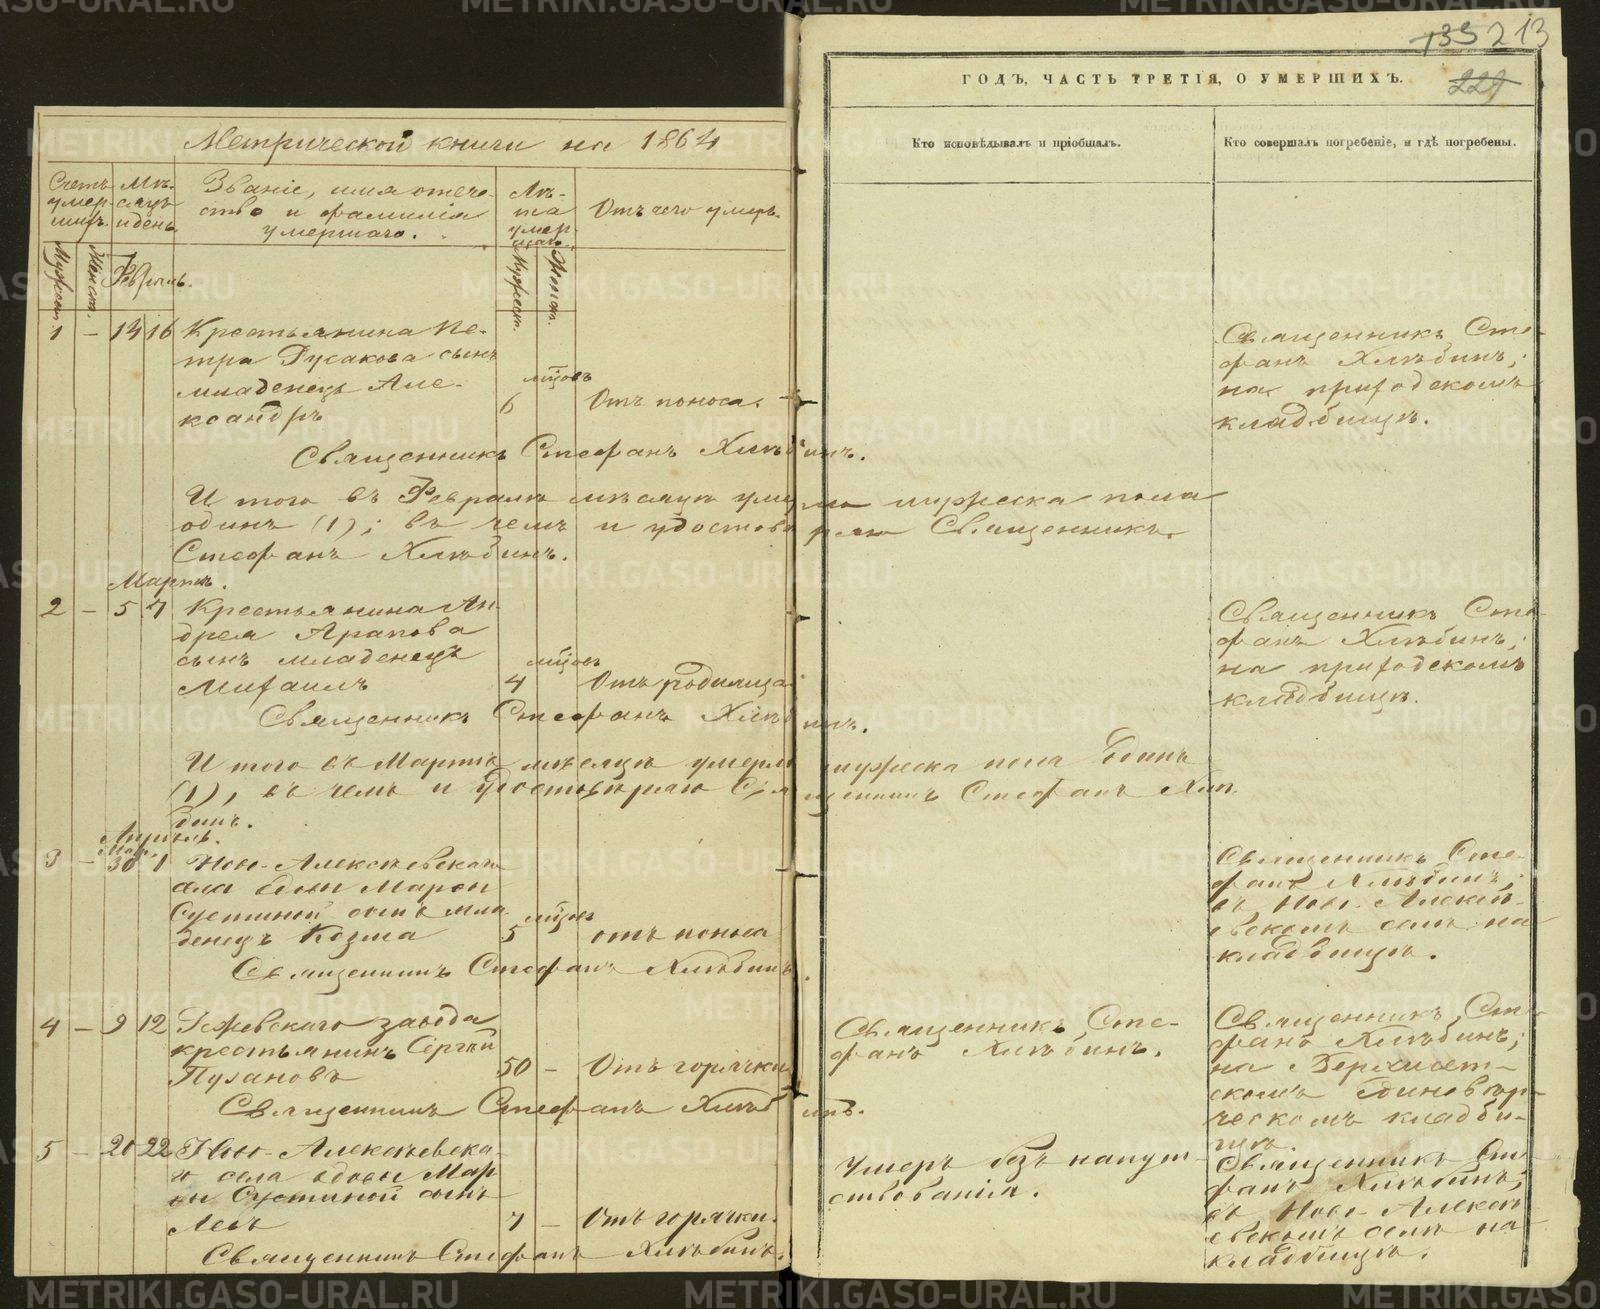 135 213
221
Метрической книги на 1864
ГОДЪ, ЧАСТЬ ТРЕТІЯ, О УМЕРШИХЪ.
Счетъ умер-ших.
Мѣ-сяцъ и день.
Званіе, имя отече-
ство и фамилія
умершаго.
Лѣ-та умер-шаго.
Отъ чего умеръ.
Кто исповѣдывалъ и пріобщалъ.
Кто совершалъ погребеніе, и гдѣ погребены.
Мужеск.
Женск.
Февраль.
Мужеск.
Женск.
1 – 14 16 Крестьянина Пе-
тра Русакова сынъ
младенецъ Але-
ксандръ
6 мѣсцовъ
Отъ поноса.
Священникъ Сте-
фанъ Хлѣбинъ;
на приходскомъ
кладбищѣ.
Священникъ Стефанъ Хлѣбинъ.
И того въ Февралѣ мѣсяцѣ умерло мужеска пола
одинъ (1); въ чемъ и удостовѣряю Священникъ
Стефанъ Хлѣбинъ.
Мартъ.
2 – 5 7 Крестьянина Ан-
дрея Арапова
сынъ младенецъ
Михаилъ
4 мѣсцовъ
Отъ родимца.
Священникъ Сте-
фанъ Хлѣбинъ;
на приходскомъ
кладбищѣ.
Священникъ Стефанъ Хлѣбинъ.
И того въ Мартѣ мѣсяцѣ умерло мужеска пола одинъ
(1), въ чемъ и удостовѣряю Священникъ Стефанъ Хлѣ-
бинъ.
Апрѣль.
Мар.
3 – 30 1 Ново-Алексѣевскаго
села вдовы Марѳы
Сустиной сынъ мла-
денецъ Козма
5 мѣсцовъ
отъ поноса
Священникъ Сте-
фанъ Хлѣбинъ;
въ Ново-Алексѣ-
евскомъ селѣ на
кладбищѣ.
Священникъ Стефанъ Хлѣбинъ.
4 – 9 12 Режевскаго завода
крестьянинъ Сергѣй
Пузановъ
50 –
Отъ горячки
Священникъ Сте-
фанъ Хлѣбинъ.
Священникъ Сте-
фанъ Хлѣбинъ;
на
скомъ Единовѣр-
ческомъ кладби-
щѣ.
Священникъ Стефанъ Хлѣбинъ.
5 – 20 22 Ново-Алексѣевска-
го села вдовы Мар-
ѳы Сустиной сынъ
Левъ
7 –
Отъ горячки.
Умеръ безъ напут-
ствованія.
Священникъ Сте-
фанъ Хлѣбинъ;
въ Ново-Алексѣ-
евскомъ селѣ на
кладбищѣ.
Священникъ Стефанъ Хлѣбинъ.
METRIKI.GASO-URAL.RU